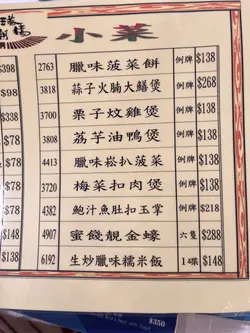 小菜
$398 2763 臘味菠菜餅 例牌 $138
$98 3818 蒜子火腩大鱔煲 例牌 $268
$338 3700 栗子炆雞煲 例牌 $138
$78 3808 荔芋油鴨煲 例牌 $138
$78 4413 臘味崧扒菠菜 例牌 $138
$78 3720 梅菜扣肉煲 例牌 $138
$78 4382 鮑汁魚肚扣玉掌 例牌 $218
$148 4907 蜜餞靚金蠔 六隻 $288
$138 6192 生炒臘味糯米飯 1碟 $148
$350